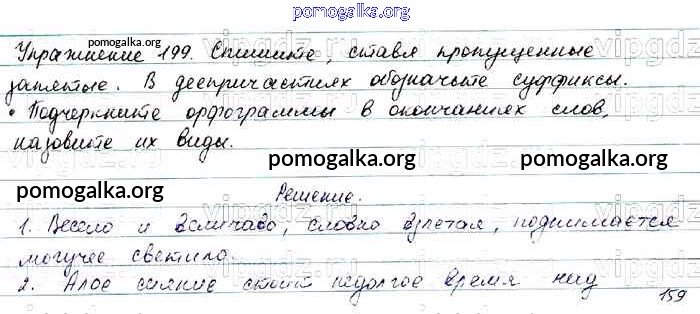 pomogalka.org
Упражнение 199. Спишите, ставя пропущенные
запятые. В деепричастиях обозначьте суффиксы.
• Подчеркните орфограммы в окончаниях слов,
назовите их виды.
pomogalka.org
pomogalka.org
pomogalka.org
pomogalka.org
Решение.
1. Весело и величаво, словно взлетая, поднимается
могучее светило.
2. Алое сияние стоит недолгое время над
159